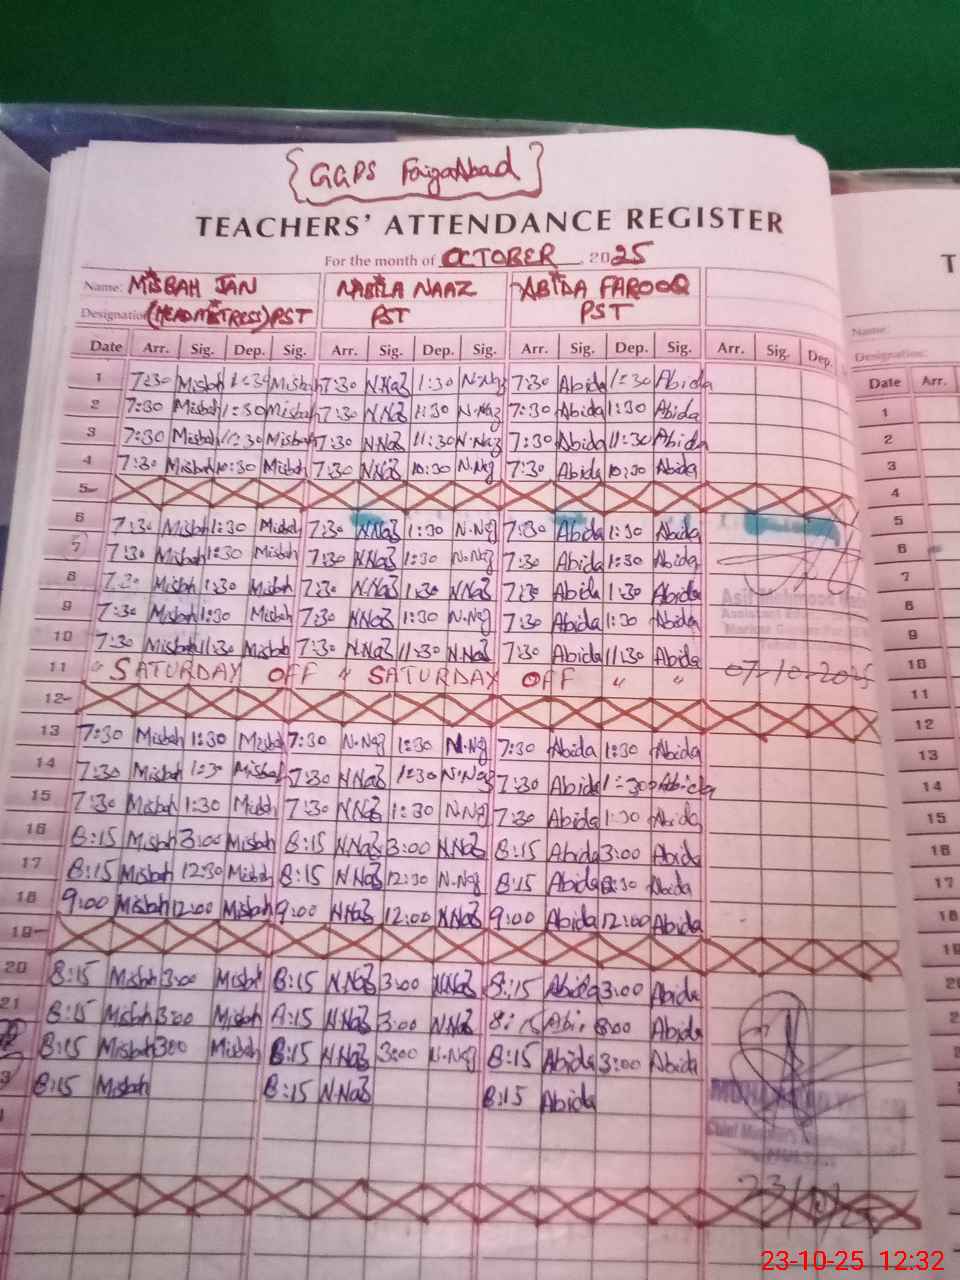 {GGPS Faizabad}
TEACHERS' ATTENDANCE REGISTER
For the month of OCTOBER 2025
Name: MISBAH JAN NABILA NAAZ ABIDA FAROOQ
Designation (HEADMISTRESS) PST PST PST
Date Arr. Sig. Dep. Sig. Arr. Sig. Dep. Sig. Arr. Sig. Dep. Sig. Arr. Sig. Dep.
1 7:30 Misbah 1:30 Misbah 7:30 N.Naz 1:30 N.Naz 7:30 Abida 1:30 Abida
2 7:30 Misbah 1:30 Misbah 7:30 N.Naz 1:30 N.Naz 7:30 Abida 1:30 Abida
3 7:30 Misbah 11:30 Misbah 7:30 N.Naz 11:30 N.Naz 7:30 Abida 11:30 Abida
4 7:30 Misbah 10:30 Misbah 7:30 N.Naz 10:30 N.Naz 7:30 Abida 10:30 Abida
5
6 7:30 Misbah 1:30 Misbah 7:30 N.Naz 1:30 N.Naz 7:30 Abida 1:30 Abida
7 7:30 Misbah 1:30 Misbah 7:30 N.Naz 1:30 N.Naz 7:30 Abida 1:30 Abida
8 7:30 Misbah 1:30 Misbah 7:30 N.Naz 1:30 N.Naz 7:30 Abida 1:30 Abida
9 7:30 Misbah 1:30 Misbah 7:30 N.Naz 1:30 N.Naz 7:30 Abida 1:30 Abida
10 7:30 Misbah 11:30 Misbah 7:30 N.Naz 11:30 N.Naz 7:30 Abida 11:30 Abida
11 " SATURDAY OFF " SATURDAY OFF " " 07-10-2025
12
13 7:30 Misbah 1:30 Misbah 7:30 N.Naz 1:30 N.Naz 7:30 Abida 1:30 Abida
14 7:30 Misbah 1:30 Misbah 7:30 N.Naz 1:30 N.Naz 7:30 Abida 1:30 Abida
15 7:30 Misbah 1:30 Misbah 7:30 N.Naz 1:30 N.Naz 7:30 Abida 1:30 Abida
16 8:15 Misbah 3:00 Misbah 8:15 N.Naz 3:00 N.Naz 8:15 Abida 3:00 Abida
17 8:15 Misbah 12:30 Misbah 8:15 N.Naz 12:30 N.Naz 8:15 Abida Abida
18 9:00 Misbah 12:00 Misbah 9:00 N.Naz 12:00 N.Naz 9:00 Abida 12:00 Abida
19
20 8:15 Misbah 3:00 Misbah 8:15 N.Naz 3:00 N.Naz 8:15 Abida 3:00 Abida
21 8:15 Misbah 3:00 Misbah 8:15 N.Naz 3:00 N.Naz 8:15 3:00 Abida
8:15 Misbah 3:00 Misbah 8:15 N.Naz 3:00 N.Naz 8:15 Abida 3:00 Abida
8:15 Misbah 8:15 N.Naz 8:15 Abida
T
Name:
Designation:
Date Arr.
1
2
3
4
5
6
7
8
9
10
11
12
13
14
15
16
17
18
19
23-10-25 12:32